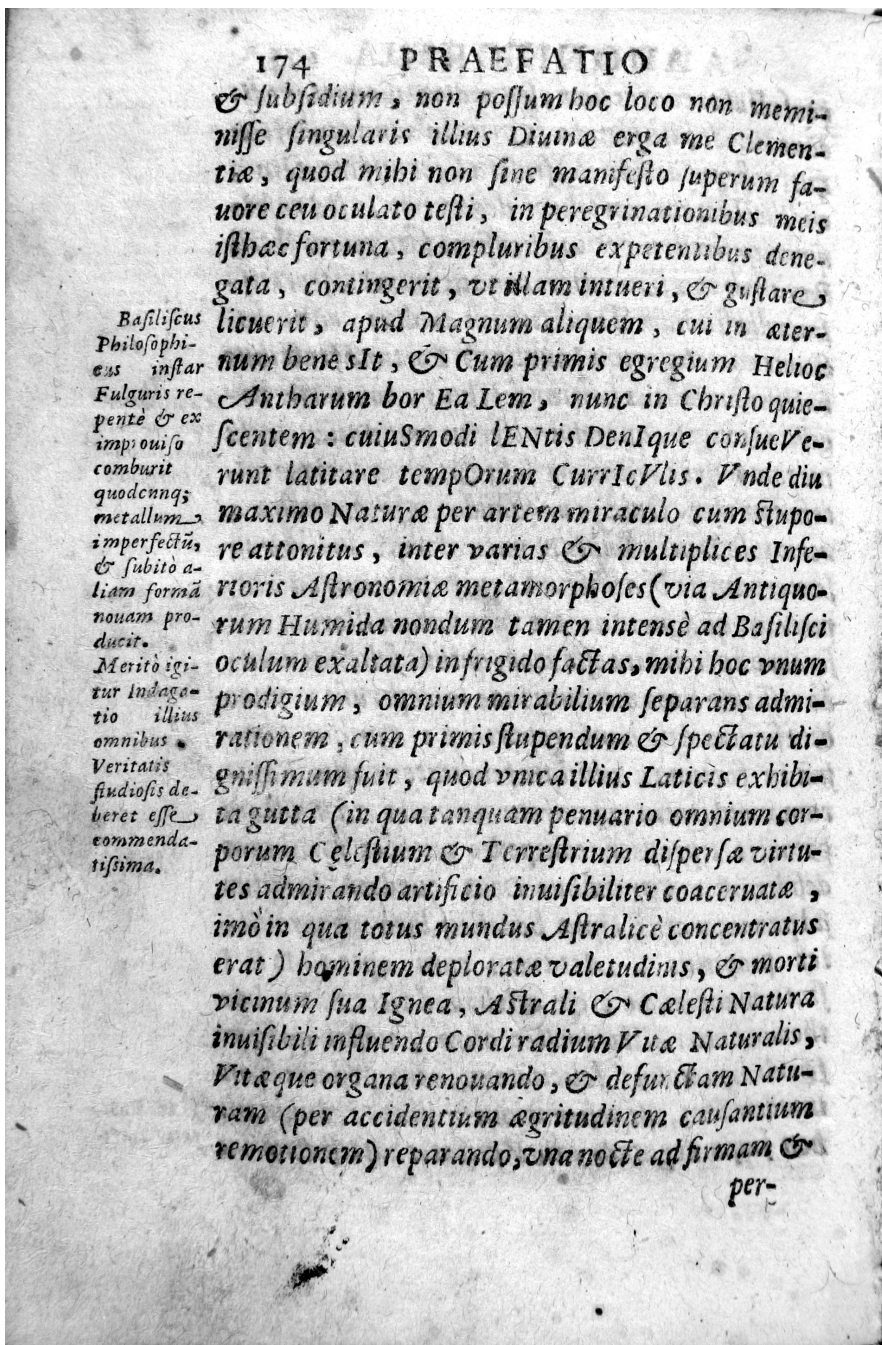 174 PRAEFATIO
& ſubſidium, non poſſum hoc loco non memi-
niſſe ſingularis illius Diuinæ erga me Clemen-
tiæ, quod mihi non ſine manifeſto ſuperum fa-
uore ceu oculato teſti, in peregrinationibus meis
iſthæc fortuna, compluribus expetentibus dene-
gata, contingerit, vt illam intueri, & guſtare
licuerit, apud Magnum aliquem, cui in æter-
num bene sIt, & Cum primis egregium Helioc
Antharum bor Ea Lem, nunc in Chriſto quie-
ſcentem: cuiuSmodi lENtis DenIque conſueVe-
runt latitare tempOrum CurrIcVlis. Vnde diu
maximo Naturæ per artem miraculo cum ſtupo-
re attonitus, inter varias & multiplices Infe-
rioris Aſtronomiæ metamorphoſes (via Antiquo-
rum Humida nondum tamen intensè ad Baſiliſci
oculum exaltata) in frigido factas, mihi hoc vnum
prodigium, omnium mirabilium ſeparans admi-
rationem, cum primis ſtupendum & ſpectatu di-
gniſſimum fuit, quod vnica illius Laticis exhibi-
ta gutta (in qua tanquam penuario omnium cor-
porum Cęleſtium & Terreſtrium diſperſæ virtu-
tes admirando artificio inuiſibiliter coaceruatæ,
imò in qua totus mundus Aſtralicè concentratus
erat) hominem deploratæ valetudinis, & morti
vicinum ſua Ignea, Aſtrali & Cæleſti Natura
inuiſibili influendo Cordi radium Vitæ Naturalis,
Vitæque organa renouando, & defunctam Natu-
ram (per accidentium ægritudinem cauſantium
remotionem) reparando, vna nocte ad firmam &
per-
Baſiliſcus
Philoſophi-
cus inſtar
Fulguris re-
pentè & ex
improuiſo
comburit
quodcunq;
metallum
imperfectū,
& ſubitò a-
liam formā
nouam pro-
ducit.
Meritò igi-
tur Indaga-
tio illius
omnibus
Veritatis
ſtudioſis de-
beret eſſe
commenda-
tiſſima.